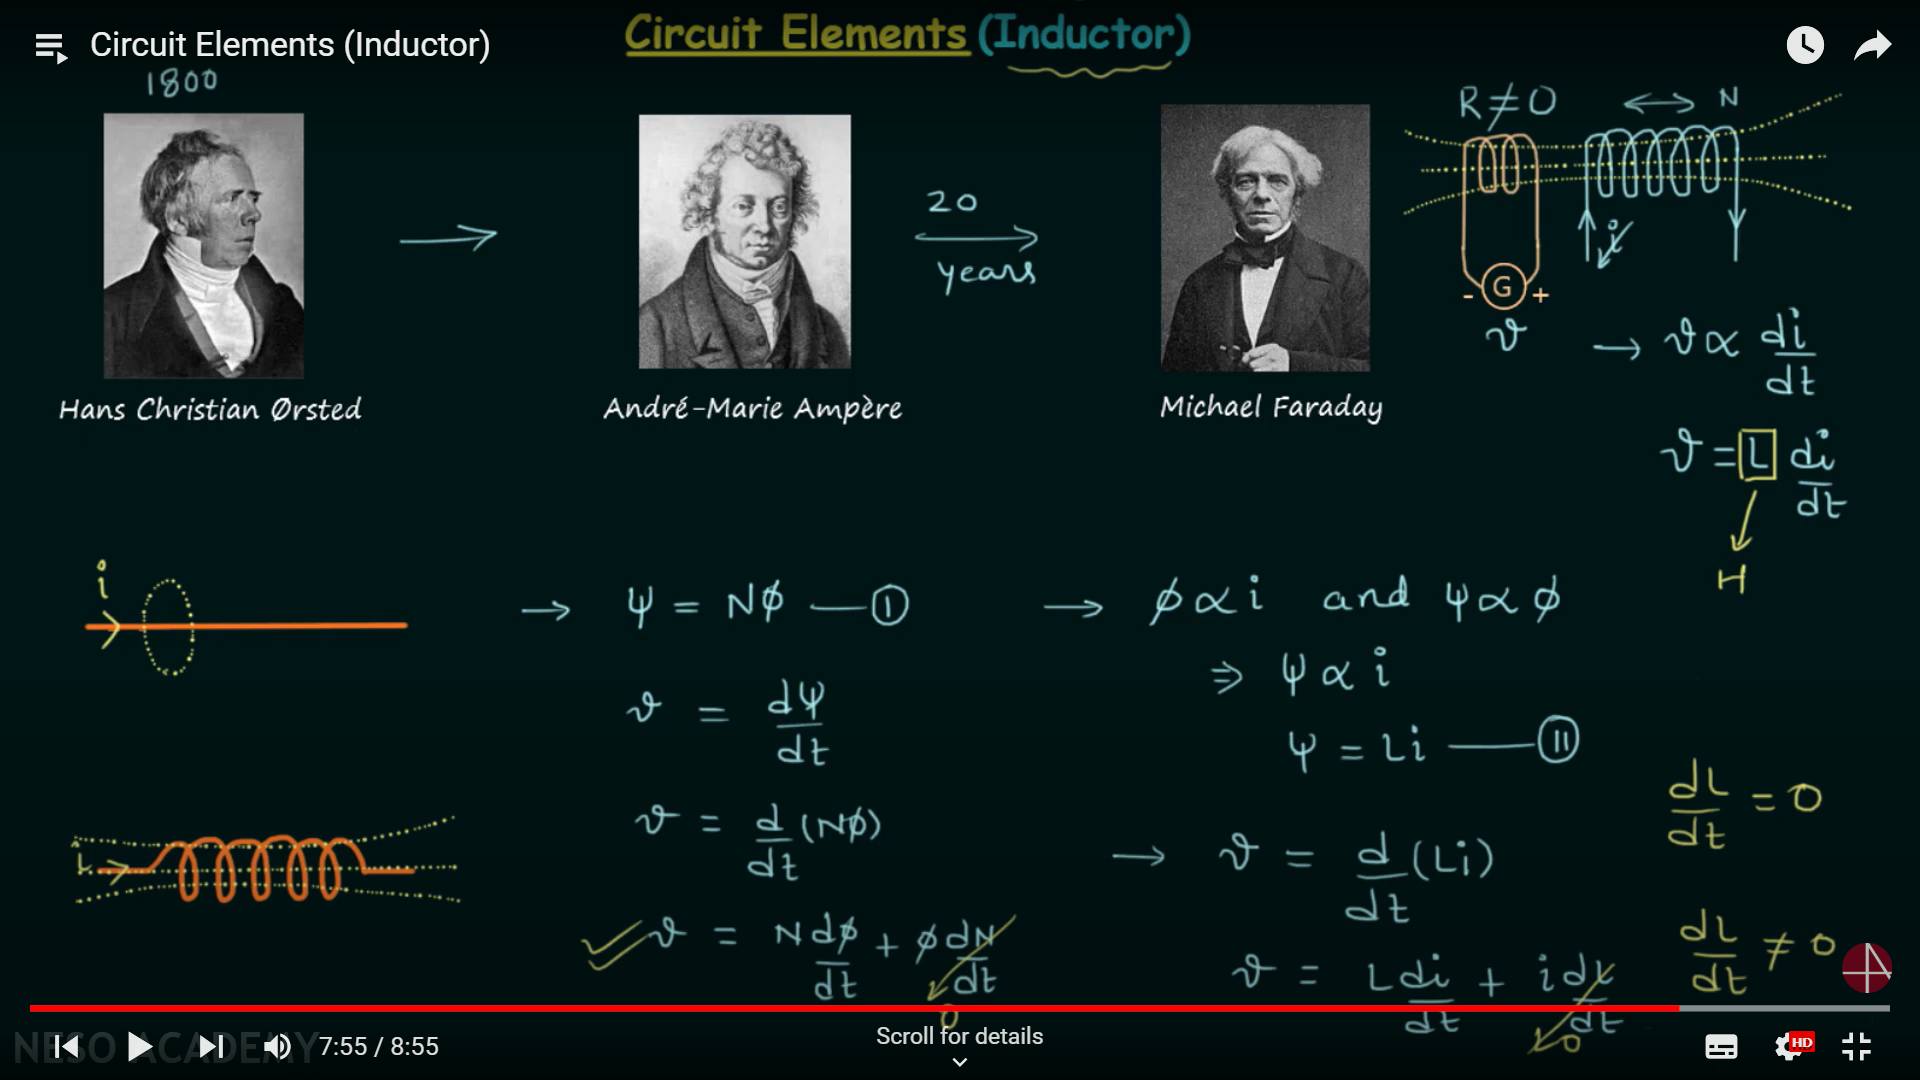 Circuit Elements (Inductor)
Circuit Elements (Inductor)
1800
20
years
Hans Christian Ørsted
André-Marie Ampère
Michael Faraday
R ≠ 0
N
i
G
- +
v
→ v ∝ di/dt
v = L di/dt
H
i
i
→ ψ = Nϕ — I
v = dψ/dt
v = d/dt (Nϕ)
v = N dϕ/dt + ϕ dN/dt
0
→ ϕ ∝ i and ψ ∝ ϕ
⇒ ψ ∝ i
ψ = Li — II
→ v = d/dt (Li)
v = L di/dt + i dL/dt
0
dL/dt = 0
dL/dt ≠ 0
NESO ACADEMY
7:55 / 8:55
Scroll for details
HD